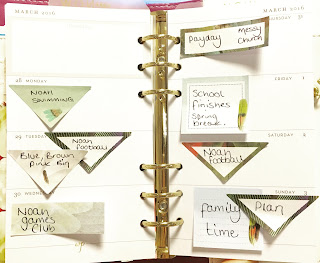 MARCH 2016
28 MONDAY
NOAH
SWIMMING
29 TUESDAY
Noah
football
Blue, Brown
Pink Big
30 WEDNESDAY
Noah
games
Club
MARCH 2016
THURSDAY 31
payday messy
Church
FRIDAY 1
School
finishes
Spring
break.
SATURDAY 2
Noah
football
SUNDAY 3
family Plan
time